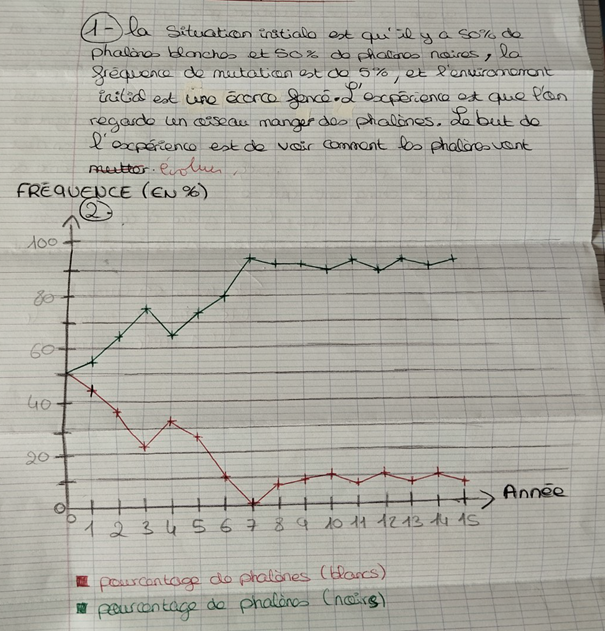 1- la situation initiale est qu'il y a 50% de
phalènes blanches et 50% de phalènes noires, la
fréquence de mutation est de 5%, et l'environement
initial est une écorce foncé. L'expérience est que l'on
regarde un oiseau manger des phalènes. Le but de
l'expérience est de voir comment les phalènes vont
évoluer.
FRÉQUENCE (EN %)
2-
100
80
60
40
20
0
Année
0 1 2 3 4 5 6 7 8 9 10 11 12 13 14 15
pourcentage de phalènes (blancs)
pourcentage de phalènes (noirs)